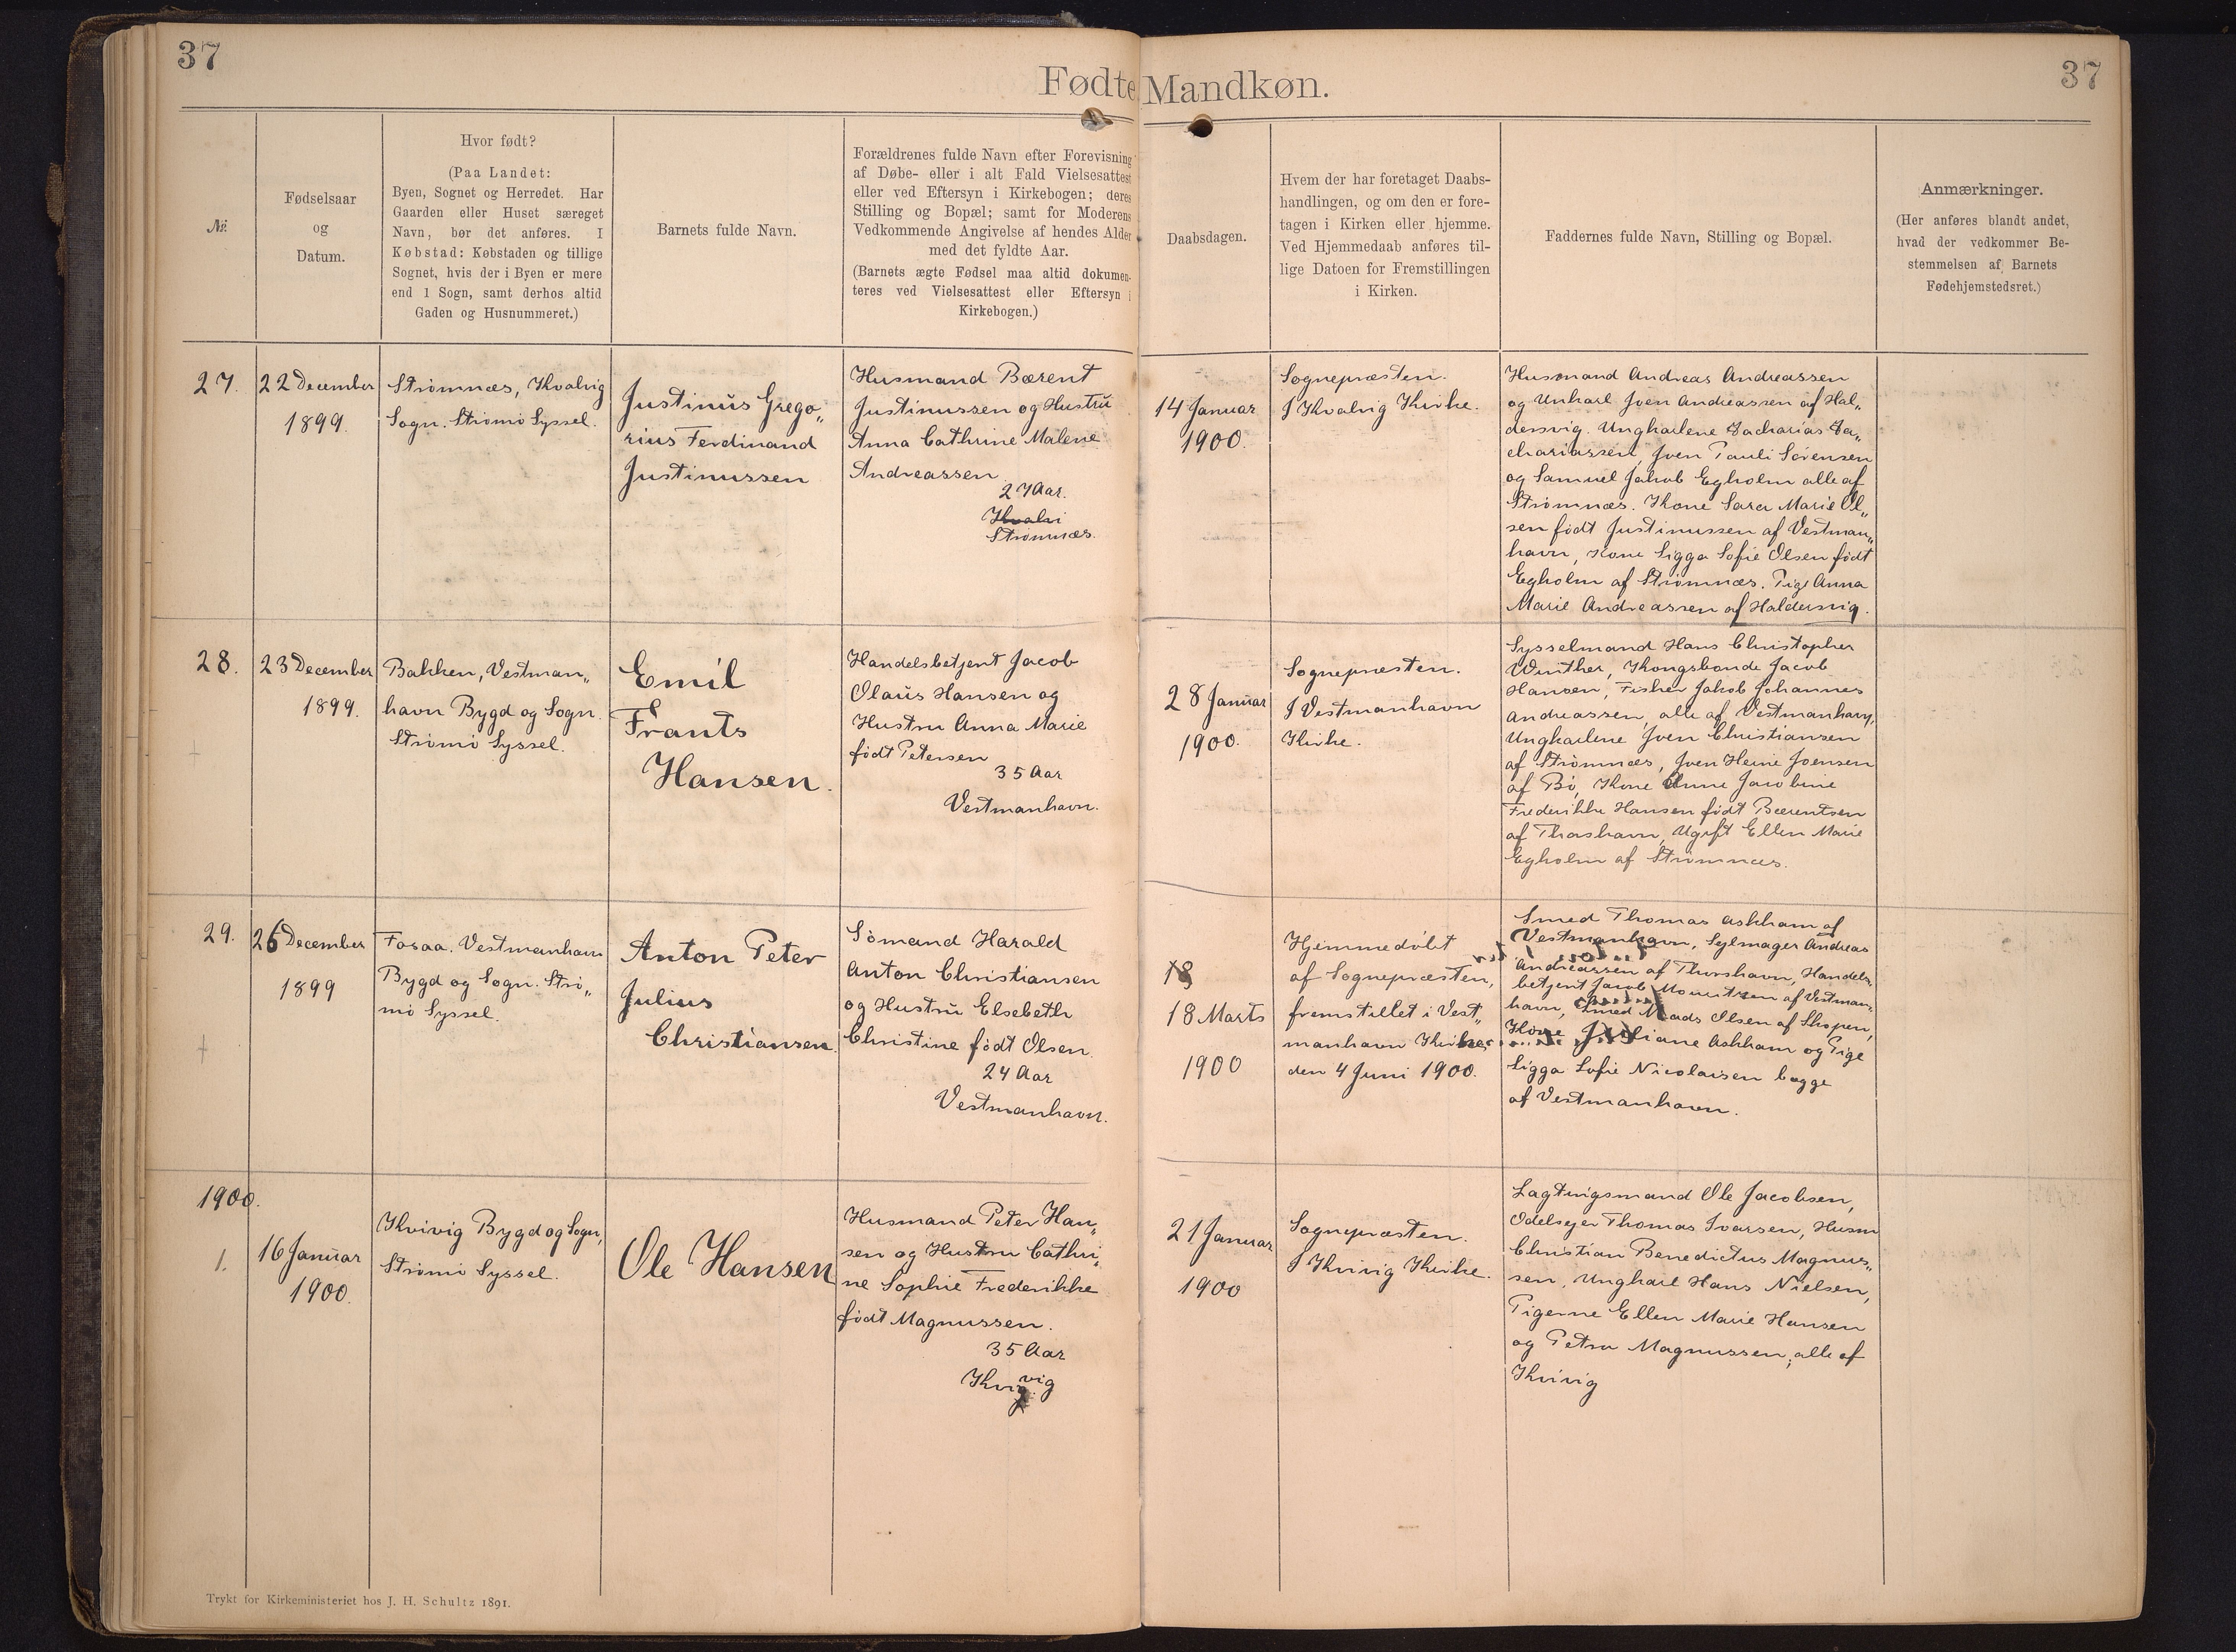 37
Fødte Mandkøn.
37
№.
Fødselsaar
og
Datum.
Hvor født?
(Paa Landet:
Byen, Sognet og Herredet. Har
Gaarden eller Huset særeget
Navn, bør det anføres. I
Købstad: Købstaden og tillige
Sognet, hvis der i Byen er mere
end 1 Sogn, samt derhos altid
Gaden og Husnummeret.)
Barnets fulde Navn.
Forældrenes fulde Navn efter Forevisning
af Døbe- eller i alt Fald Vielsesattest
eller ved Eftersyn i Kirkebogen; deres
Stilling og Bopæl; samt for Moderens
Vedkommende Angivelse af hendes Alder
med det fyldte Aar.
(Barnets ægte Fødsel maa altid dokumen-
teres ved Vielsesattest eller Eftersyn i
Kirkebogen.)
Daabsdagen.
Hvem der har foretaget Daabs-
handlingen, og om den er fore-
tagen i Kirken eller hjemme.
Ved Hjemmedaab anføres til-
lige Datoen for Fremstillingen
i Kirken.
Faddernes fulde Navn, Stilling og Bopæl.
Anmærkninger.
(Her anføres blandt andet,
hvad der vedkommer Be-
stemmelsen af Barnets
Fødehjemstedsret.)
27.
22 December
1899.
Strömnæs, Kvalvig
Sogn. Strömö Syssel.
Justinus Grego„
rius Ferdinand
Justinussen
Husmand Bærent
Justinussen og Hustru
Anna Cathrine Malene
Andreassen
27 Aar.
Kvalvi
Strömnæs.
14 Januar
1900.
Sognepræsten.
I Kvalvig Kirke.
Husmand Andreas Andreassen
og Unkarl Joen Andreassen af Hal„
dersvig. Ungkarlene Zacharias Za„
chariassen, Joen Pauli Sörensen
og Samuel Jakob Egholm alle af
Strömnæs. Kone Sara Marie Ol„
sen født Justinussen af Vestman„
havn, Kone Sigga Sofie Olsen født
Egholm af Strömnæs. Pige Anna
Marie Andreassen af Haldersvig.
28.
23 December
1899.
Bakken, Vestman„
havn Bygd og Sogn.
Strömö Syssel.
Emil
Frants
Hansen.
Handelsbetjent Jacob
Olaus Hansen og
Hustru Anna Marie
født Petersen
35 Aar
Vestmanhavn.
28 Januar
1900.
Sognepræsten.
I Vestmanhavn
Kirke.
Sysselmand Hans Christopher
Winther, Kongsbonde Jacob
Hansen, Fisker Jakob Johannes
Andreassen, alle af Vestmanhavn,
Ungkarlene Joen Christiansen
af Strömnæs, Joen Heine Joensen
af Bö, Kone Anne Jacobine
Frederikke Hansen født Bærentsen
af Thorshavn, Ugift Ellen Marie
Egholm af Strömnæs.
29.
26 December
1899
Fosaa. Vestmanhavn
Bygd og Sogn. Strö„
mö Syssel.
Anton Peter
Julius
Christiansen
Sömand Harald
Anton Christiansen
og Hustru Elsebeth
Christine født Olsen.
24 Aar
Vestmanhavn.
18
18 Marts
1900
Hjemmedöbt
af Sognepræsten,
fremstillet i Vest„
manhavn Kirke
den 4 Juni 1900.
Smed Thomas Askham af
Vestmanhavn, Sylmager Andreas
Andreassen af Thorshavn, Handels„
betjent Jacob Mouritsen af Vestman„
havn, Smed Mads Olsen af Skopen,
Kone Juliane Askham og Pige
Sigga Sofie Nicolaisen begge
af Vestmanhavn.
1900.
1.
16 Januar
1900.
Kvivig Bygd og Sogn,
Strömö Syssel.
Ole Hansen
Husmand Peter Han„
sen og Hustru Cathri„
ne Sophie Frederikke
født Magnussen.
35 Aar
Kvivig
21 Januar
1900
Sognepræsten.
I Kvivig Kirke.
Lagtingsmand Ole Jacobsen,
Odelsejer Thomas Ivarsen, Husm
Christian Benedictus Magnus„
sen, Ungkarl Hans Nielsen,
Pigerne Ellen Marie Hansen
og Petra Magnussen, alle af
Kvivig
Trykt for Kirkeministeriet hos J. H. Schultz 1891.